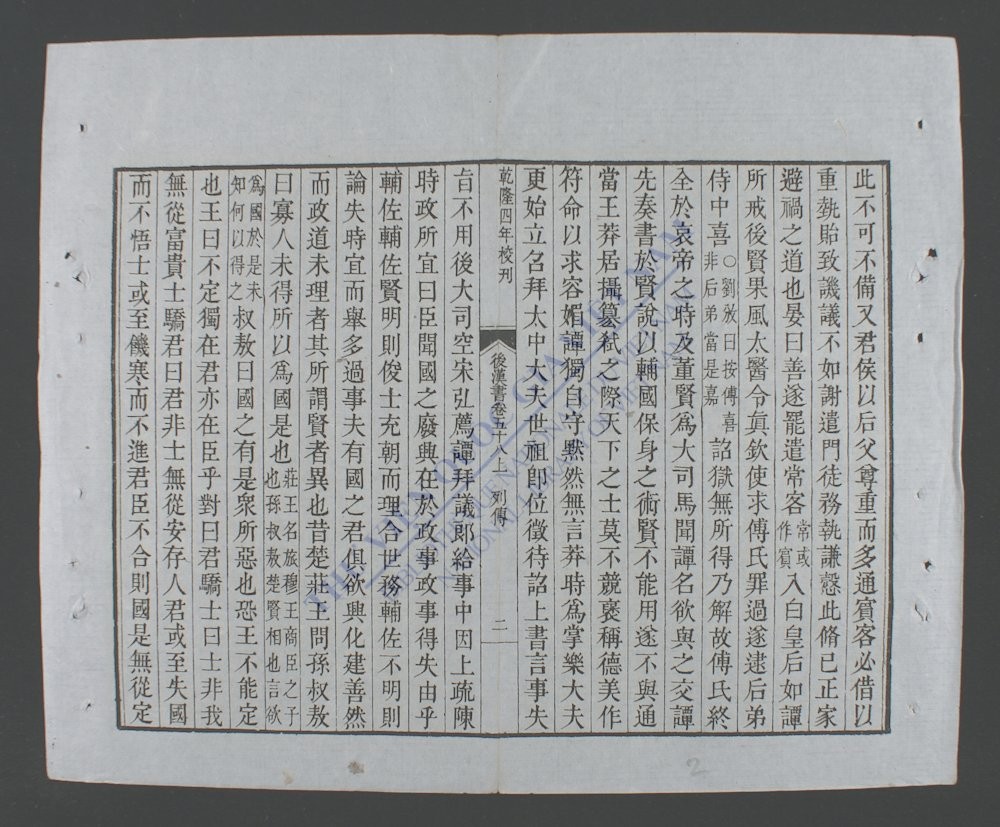 此不可不備又君侯以后父尊重而多通賓客必借以
重埶貽致譏議不如謝遣門徒務執謙慤此脩已正家
避禍之道也晏曰善遂罷遣常客常或作賓入白皇后如譚
所戒後賢果風太醫令眞欽使求傅氏罪過遂逮后弟
侍中喜○劉攽曰按傅喜非后弟當是嘉詔獄無所得乃解故傅氏終
全於哀帝之時及董賢爲大司馬聞譚名欲與之交譚
先奏書於賢說以輔國保身之術賢不能用遂不與通
當王莽居攝篡弒之際天下之士莫不競襃稱德美作
符命以求容媚譚獨自守默然無言莽時爲掌樂大夫
更始立名拜太中大夫世祖卽位徵待詔上書言事失
乾隆四年校刊
後漢書卷五十八上 列傳
二
旨不用後大司空宋弘薦譚拜議郞給事中因上疏陳
時政所宜曰臣聞國之廢興在於政事政事得失由乎
輔佐輔佐賢明則俊士充朝而理合世務輔佐不明則
論失時宜而舉多過事夫有國之君俱欲興化建善然
而政道未理者其所謂賢者異也昔楚莊王問孫叔敖
曰寡人未得所以爲國是也莊王名旅穆王商臣之子也孫叔敖楚賢相也言欲
爲國於是未知何以得之叔敖曰國之有是衆所惡也恐王不能定
也王曰不定獨在君亦在臣乎對曰君驕士曰士非我
無從富貴士驕君曰君非士無從安存人君或至失國
而不悟士或至饑寒而不進君臣不合則國是無從定
THƯ VIỆN QUỐC GIA VIỆT NAM
NATIONAL LIBRARY OF VIETNAM
2